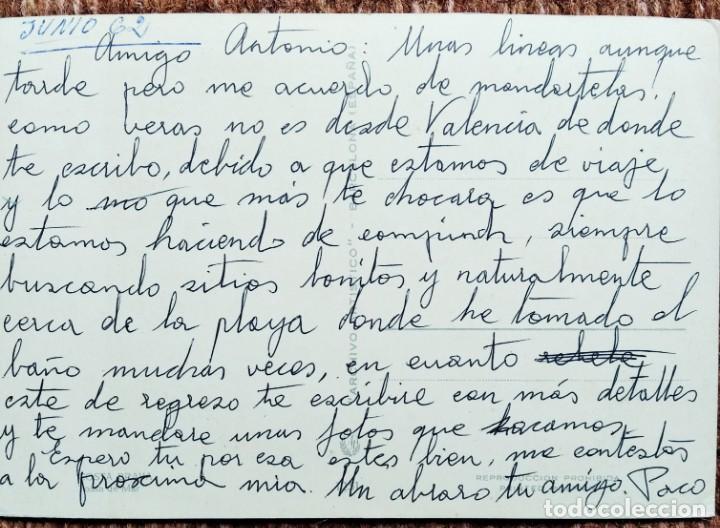 JUNIO 62
Amigo Antonio: Unas lineas aunque
tarde pero me acuerdo de mandartelas,
como veras no es desde Valencia de donde
te escribo, debido a que estamos de viaje
y lo que más te chocara es que lo
estamos haciendo de compinch, siempre
buscando sitios bonitos y naturalmente
cerca de la playa donde he tomado el
baño muchas veces, en cuanto
este de regreso te escribire con más detalles
y te mandare unas fotos que hacamos.
Espero tu por esa estes bien, me contestas
a la proxima mia. Un abrazo tu amigo. Paco
REPRODUCCION PROHIBIDA
todocoleccion